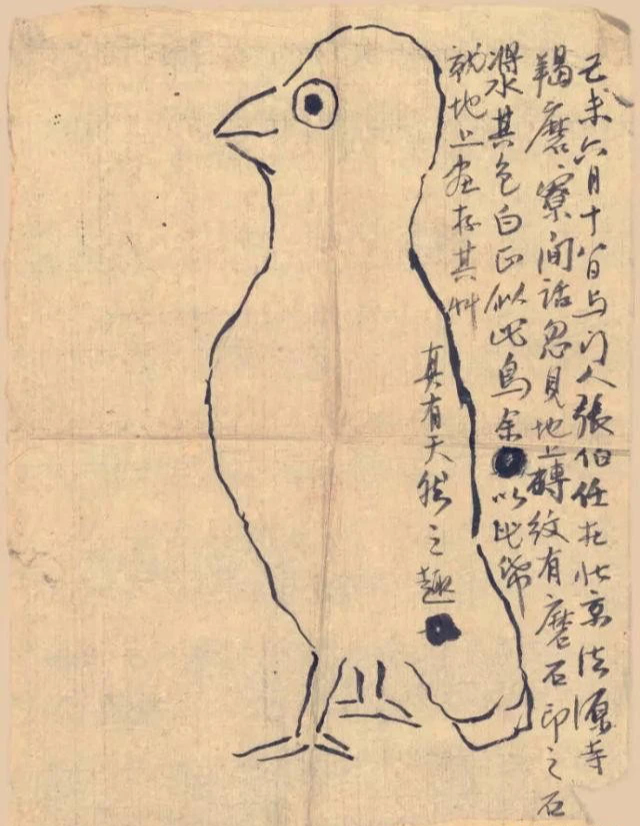 己未六月十八日与门人張伯任在北京法源寺
羯磨寮闲话忽見地上磚紋有磨石印之石
浆水其色白正似此鳥余以此纸
就地上画存其草
真有天然之趣